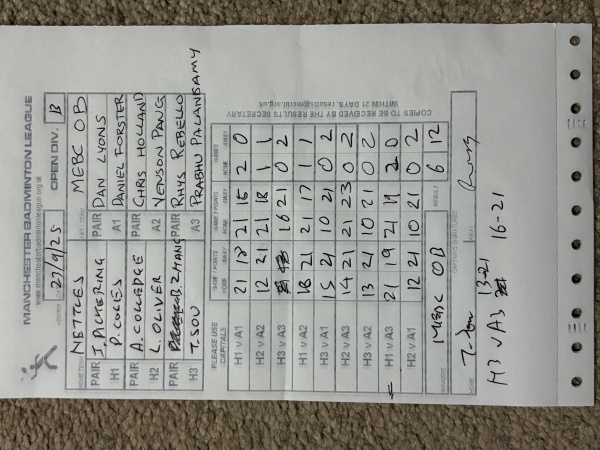 MANCHESTER BADMINTON LEAGUE
www.manchesterbadmintonleague.org.uk
27/9/25 OPEN DIV. 1B
HOME TEAM NETTLES MEBC OB
PAIR J. PICKERING PAIR DAN LYONS
H1 P. COLES A1 DANIEL FORSTER
PAIR A. COLLEDGE PAIR CHRIS HOLLAND
H2 L. OLIVER A2 VENSON PANG
PAIR B ZHANG PAIR RHYS REBELLO
H3 T. SOU A3 PRABHU PALANISAMY
PLEASE USE CAPITALS GAME 1 POINTS GAME 2 POINTS GAMES
HOME AWAY HOME AWAY HOME AWAY
H1 V A1 21 18 21 15 2 0
H2 V A2 12 21 21 18 1 1
H3 V A3 16 21 0 2
H1 V A2 18 21 21 17 1 1
H3 V A1 15 21 10 21 0 2
H2 V A3 14 21 21 23 0 2
H3 V A2 13 21 10 21 0 2
H1 V A3 21 19 21 19 2 0
H2 V A1 12 21 10 21 0 2
WINNERS MEBC OB RESULT 6 12
CAPTAINS SIGNATURES
HOME T. Sou AWAY
H3 V A3 13-21 16-21
COPIES TO BE RECEIVED BY THE RESULTS SECRETARY
WITHIN 21 DAYS. results@mcrbl.org.uk